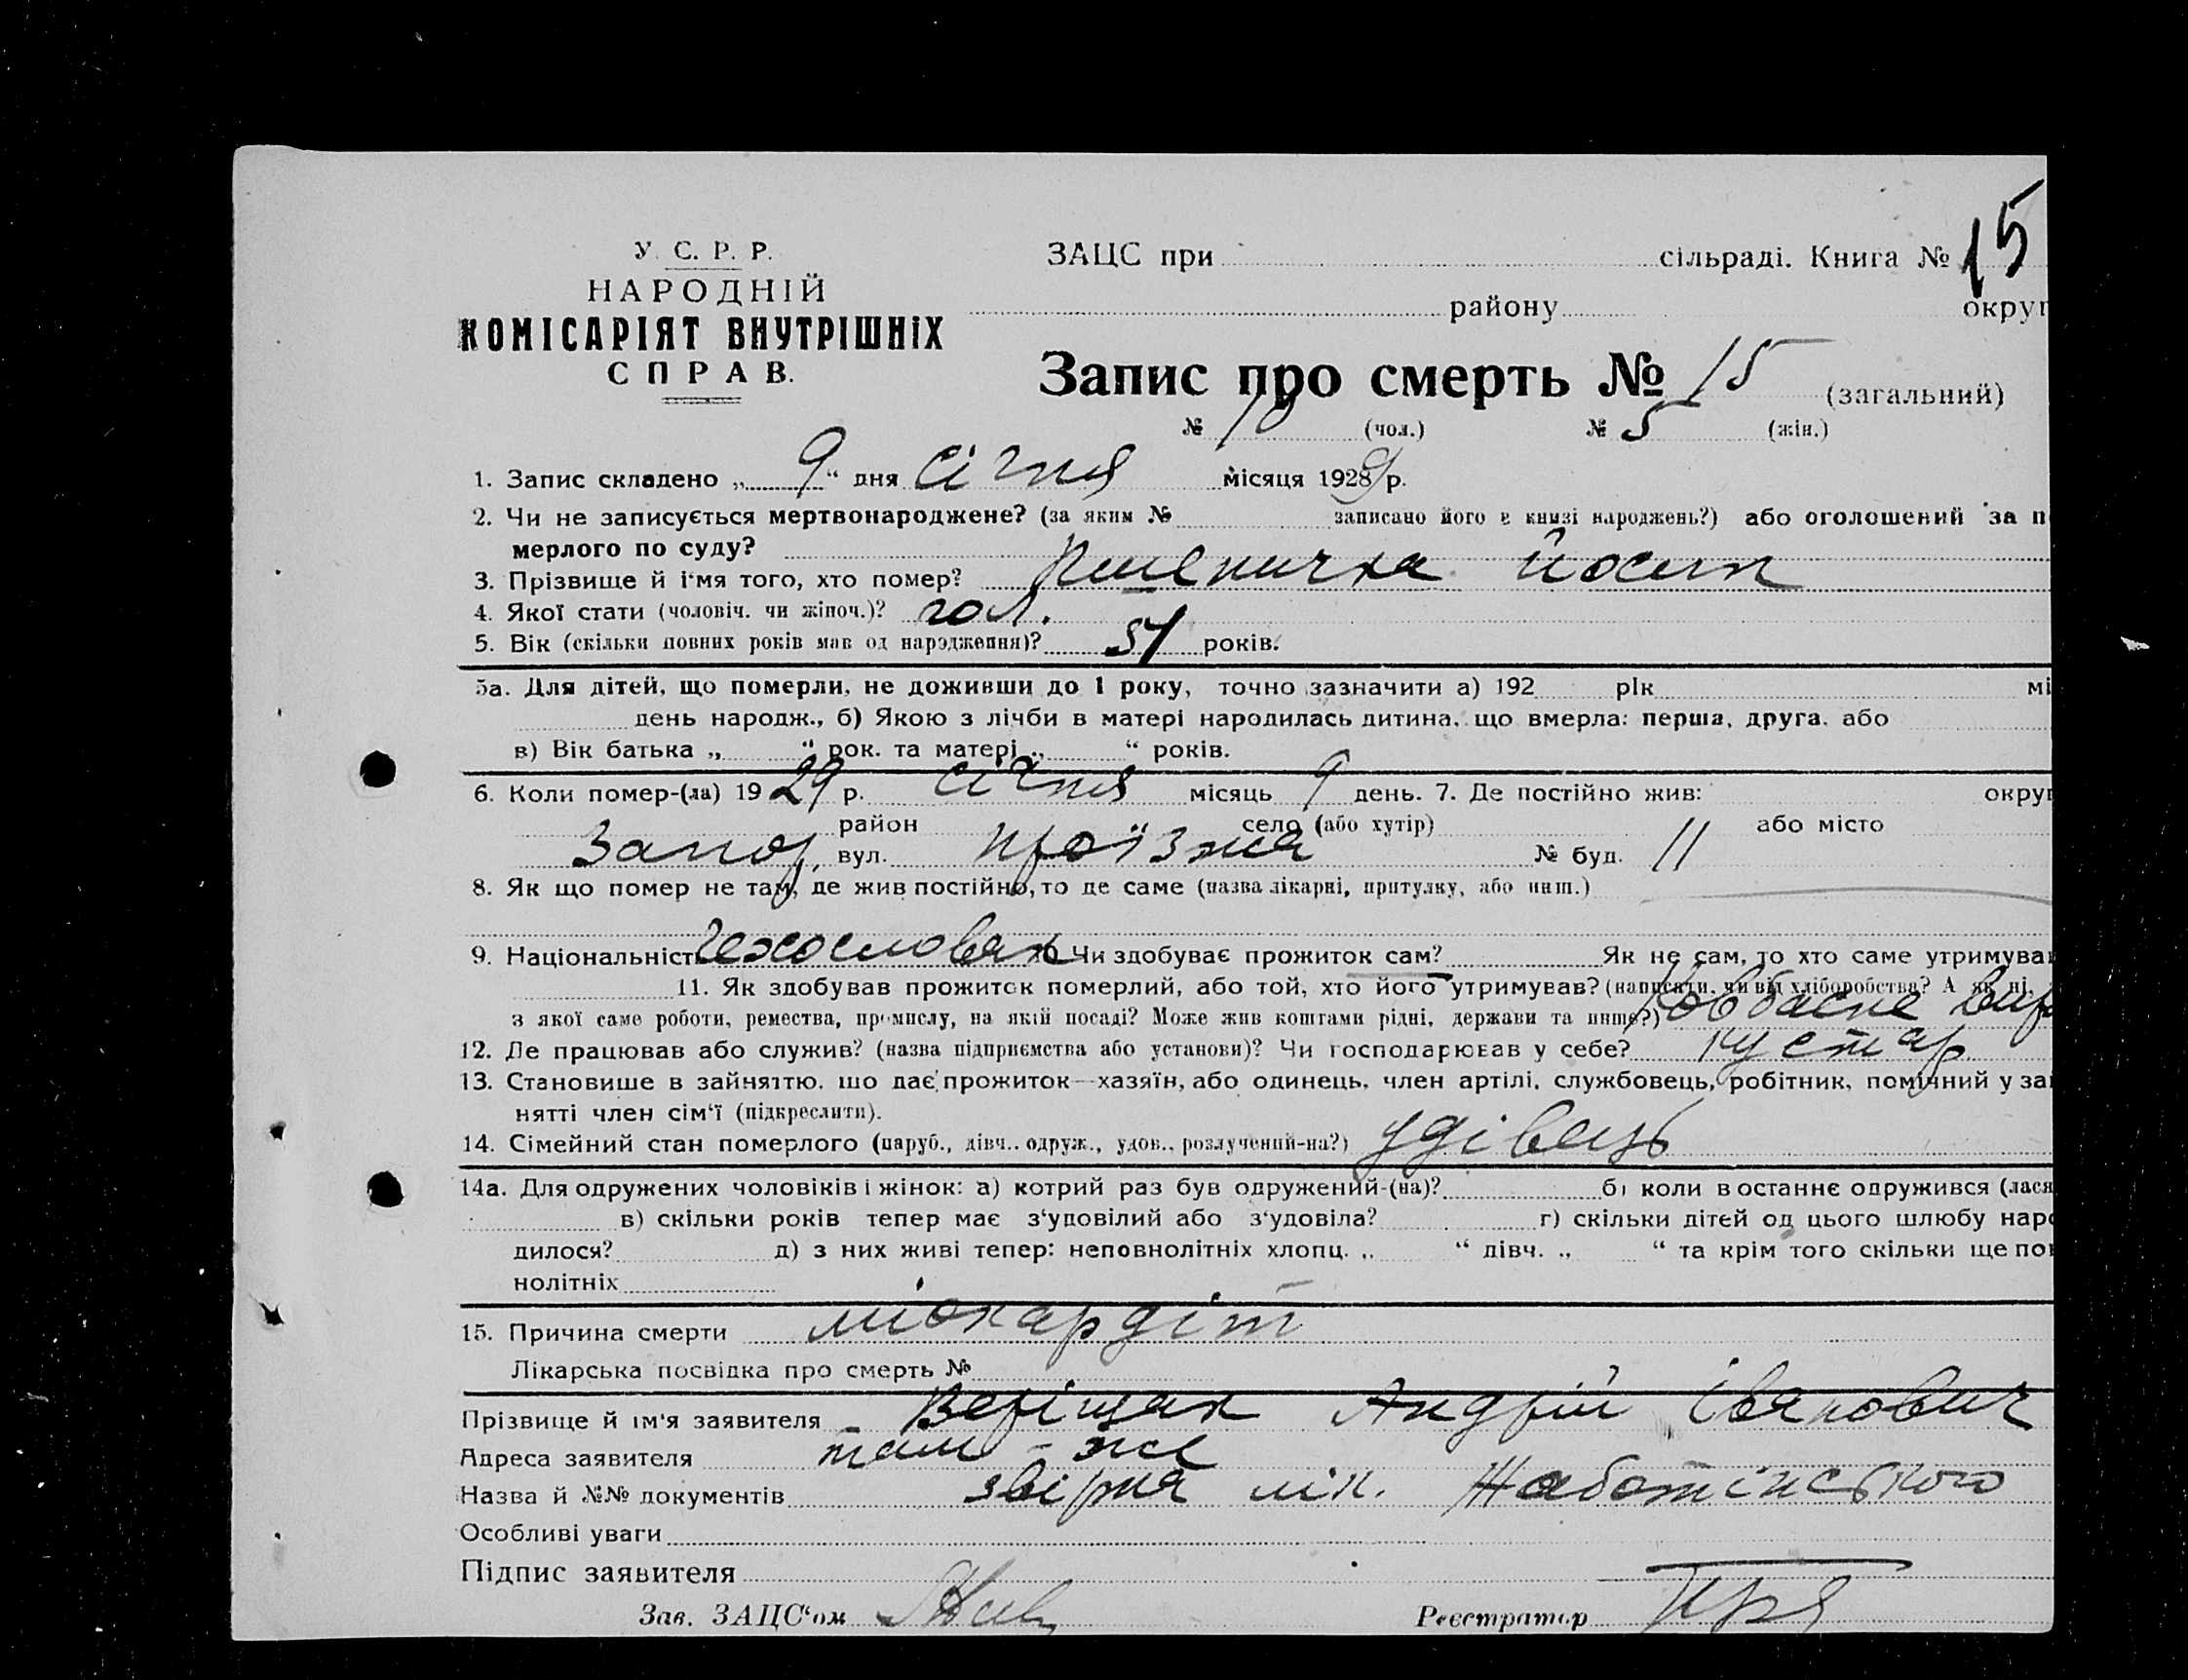 У. С. Р. Р.
НАРОДНІЙ
КОМІСАРІЯТ ВНУТРІШНІХ
СПРАВ.
ЗАЦС при сільраді. Книга № 15
району округ
Запис про смерть № 15 (загальний)
№ 10 (чол.) № 5 (жін.)
1. Запис складено „ 9 “ дня січня місяця 1929 р.
2. Чи не записується мертвонароджене? (за яким № записано його в книзі народжень?) або оголошений за п
мерлого по суду?
3. Прізвище й ім'я того, хто помер? Пшеничка Йосип
4. Якої стати (чоловіч. чи жіноч.)? чол.
5. Вік (скільки повних років мав од народження)? 51 років.
5а. Для дітей, що померли, не доживши до 1 року, точно зазначити а) 192 рік мі
день народж., б) Якою з лічби в матері народилась дитина, що вмерла: перша, друга, або
в) Вік батька „ “ рок. та матері „ “ років.
6. Коли помер-(ла) 1929 р. січня місяць 9 день. 7. Де постійно жив: округ
район село (або хутір) або місто
Запор. вул. Проїзна № буд. 11
8. Як що помер не там, де жив постійно, то де саме (назва лікарні, притулку, або инш.)
9. Національність чехословак 10. Чи здобуває прожиток сам? Як не сам, то хто саме утримував
11. Як здобував прожиток померлий, або той, хто його утримував? (написати, чи від хліборобства? А як ні,
з якої саме роботи, ремества, промислу, на якій посаді? Може жив коштами рідні, держави та инше?) Ковбасне вир
12. Де працював або служив? (назва підприємства або установи)? Чи господарював у себе? кустар
13. Становище в зайняттю, що дає прожиток—хазяїн, або одинець, член артілі, службовець, робітник, помічний у за
нятті член сім'ї (підкреслити).
14. Сімейний стан померлого (паруб., дівч., одруж., удов., розлучений-на?) удівець
14а. Для одружених чоловіків і жінок: а) котрий раз був одружений-(на)? б) коли востаннє одружився (лася
в) скільки років тепер має з'удовілий або з'удовіла? г) скільки дітей од цього шлюбу наро
дилося? д) з них живі тепер: неповнолітніх хлопц. „ “ дівч. „ “ та крім того скільки ще пов
нолітніх
15. Причина смерти міокардіт
Лікарська посвідка про смерть №
Прізвище й ім'я заявителя Веріщак Андрій Іванович
Адреса заявителя там-же
Назва й №№ документів звірка лік. Жаботінського
Особливі уваги
Підпис заявителя
Зав. ЗАЦС'ом Реєстратор